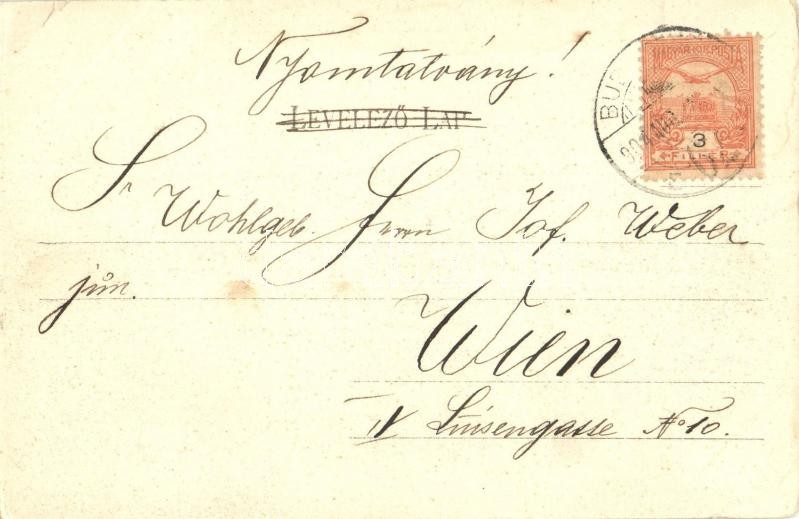 Nyomtatvány!
LEVELEZŐ LAP
MAGYAR KIR. POSTA
BUD
3
FILLER
Sr Wohlgeb. Herrn Jos. Weber
jun.
Wien
IV Luisengasse No 10.